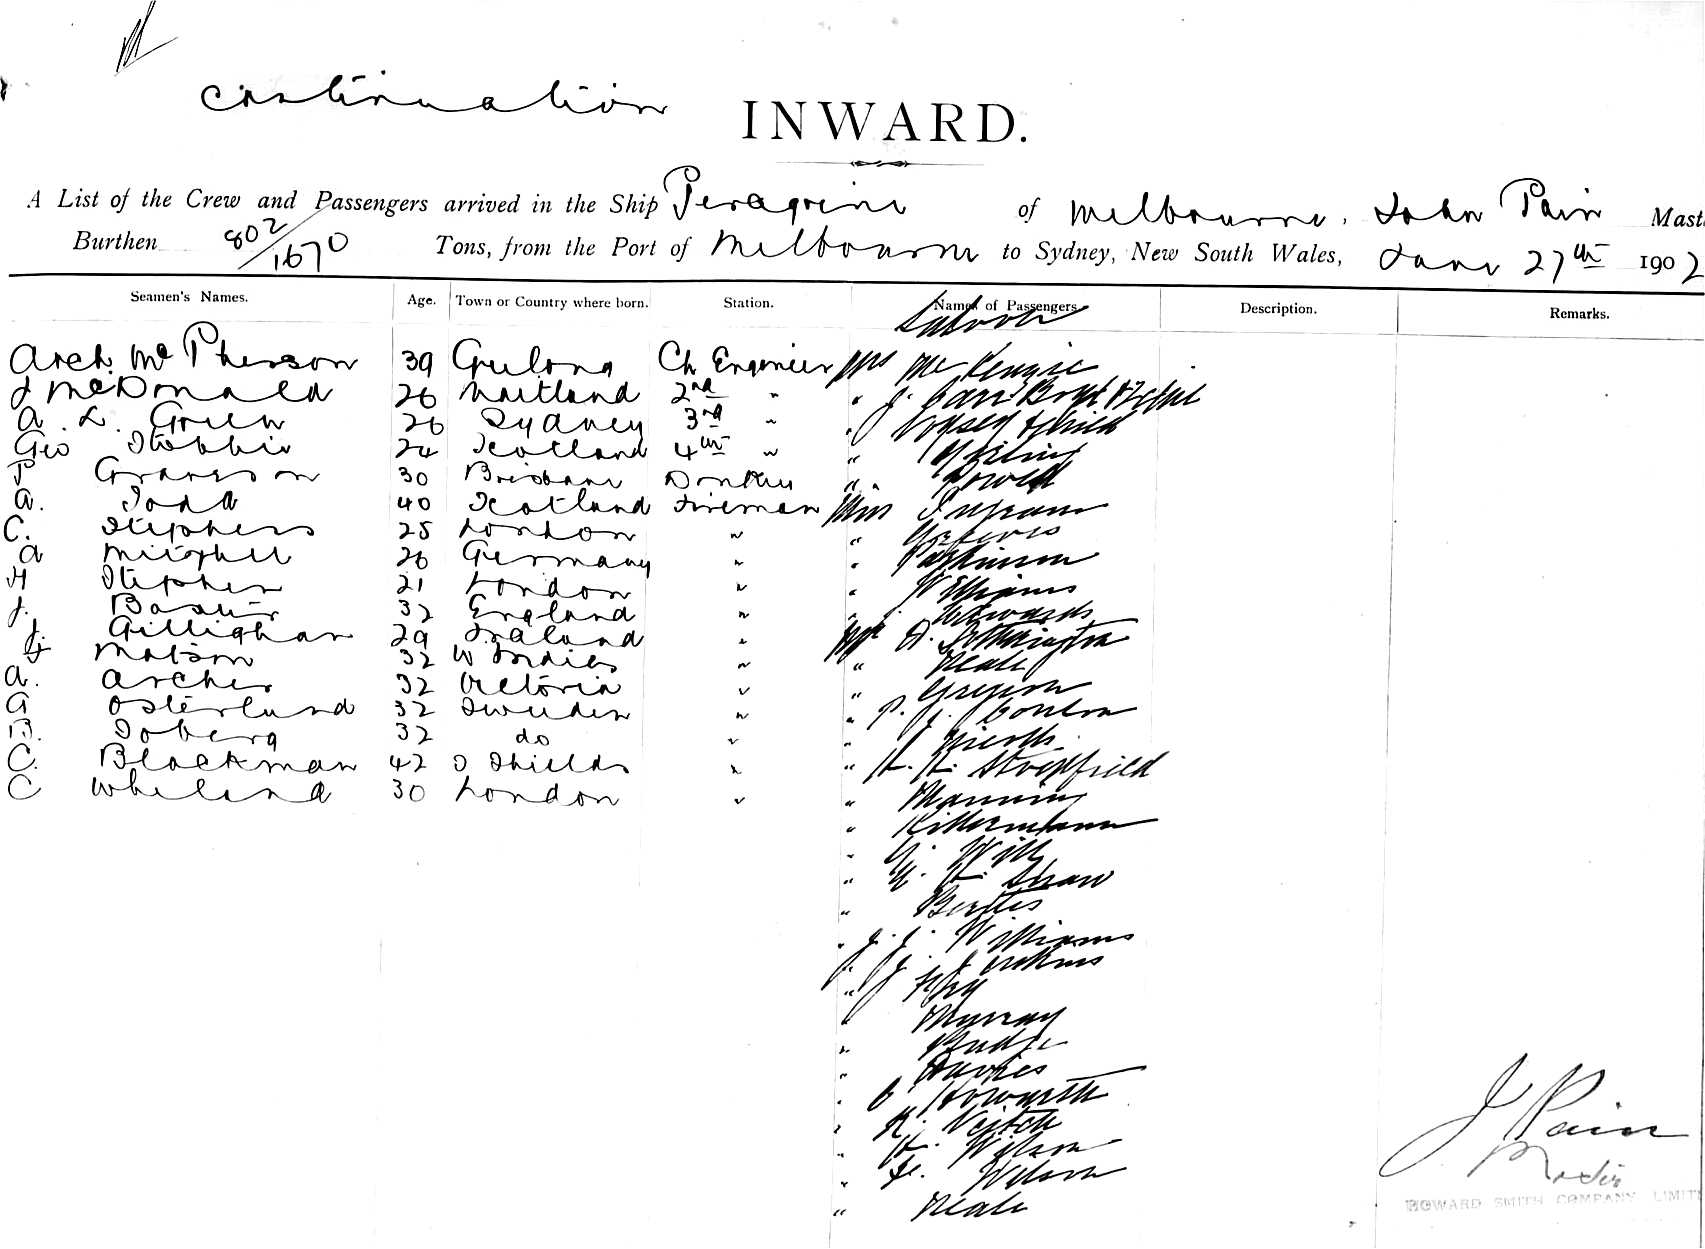 continuation
INWARD.
A List of the Crew and Passengers arrived in the Ship Peregrine of Melbourne, John Pain Mast
Burthen 802/1670 Tons, from the Port of Melbourne to Sydney, New South Wales, June 27th 1902
Seamen's Names. Age. Town or Country where born. Station. Names of Passengers Description. Remarks.
Saloon
Arch. McPherson 39 Geelong Ch Engineer Mrs McKenzie
J McDonald 26 Maitland 2nd " " J.
A. L. Green 26 Sydney 3rd " "
Geo Stobbie 24 Scotland 4th " "
P Graveson 30 Brisbane Donkey " "
A. Todd 40 Scotland Fireman Miss Ingram
C. Stephens 25 London " "
A Mitchell 26 Germany " " Parkinson
H Stephen 21 London " " Williams
J. Baxter 32 England " " Edwards
J. Gillighan 29 Ireland " Mr A.
Matson 32 W Indies " " Neale
A. Archer 32 Victoria " "
A Osterlund 32 Sweden " " P. J. Coulson
B. Soberg 32 do " "
C. Blackman 42 S Shields " " H. H. Stockfield
C Wheland 30 London " " Manning
" Killermann
" G. Will
" H. Shaw
"
" J. J. Williams
J. J. Jenkins
" Fry
" Murray
" Budge
" Davies
" C Howarth
" R. Veitch
" H. Wilson
" Wilson
" Neale
J Pain
Master
HOWARD SMITH COMPANY LIMIT